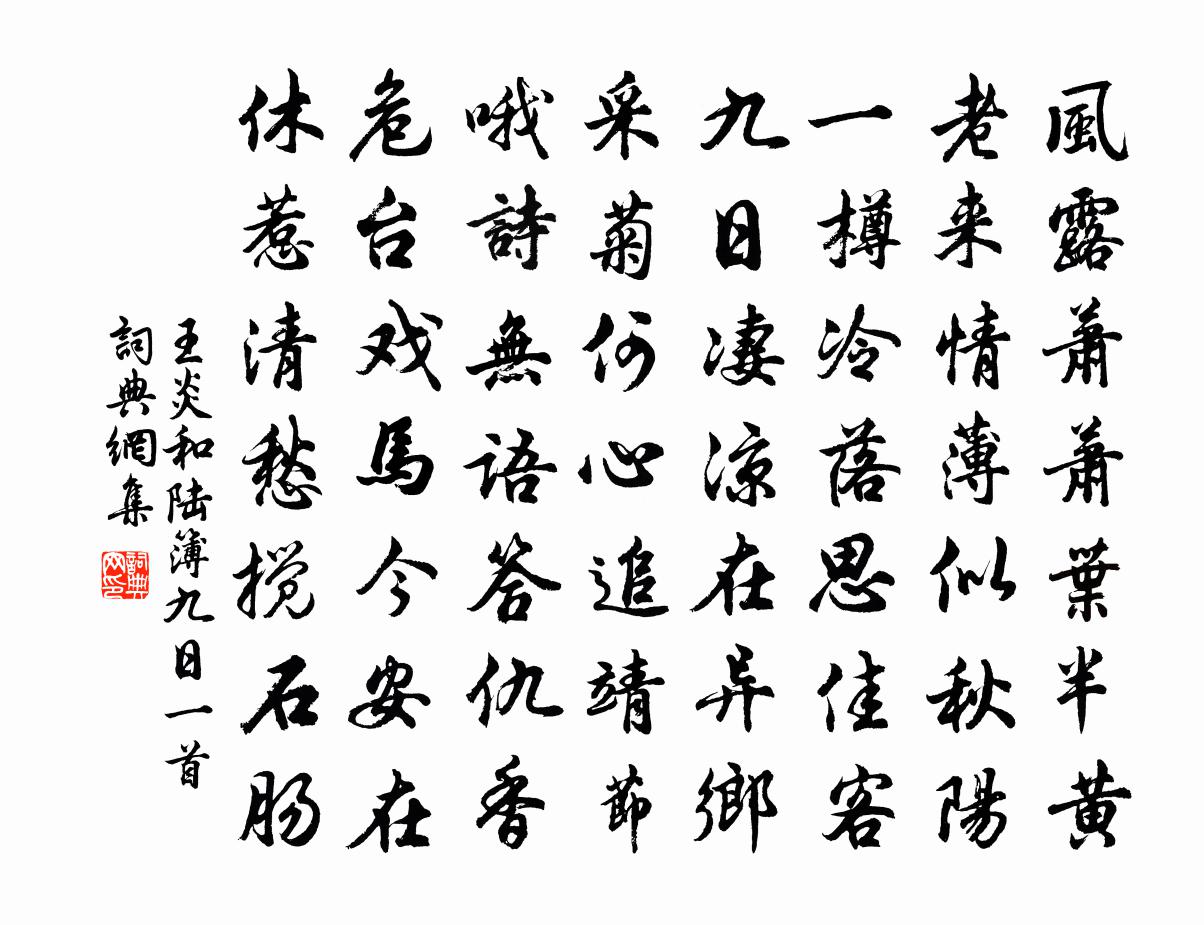 風露蕭蕭葉半黄
老来情薄似秋陽
一樽冷落思佳客
九日凄凉在异鄉
采菊何心追靖節
哦詩無語答仇香
危台戏馬今安在
休惹清愁搅石肠
王炎和陆簿九日一首
詞典網集
詞典网印